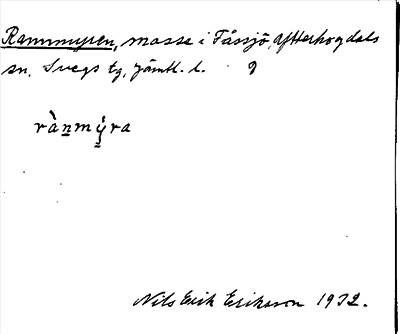 Rammyren, mosse i Fåssjö, Ytterhogdals
sn, Svegs tg, Jämtl. l.
rànmýra
Nils Erik Eriksson 1972.